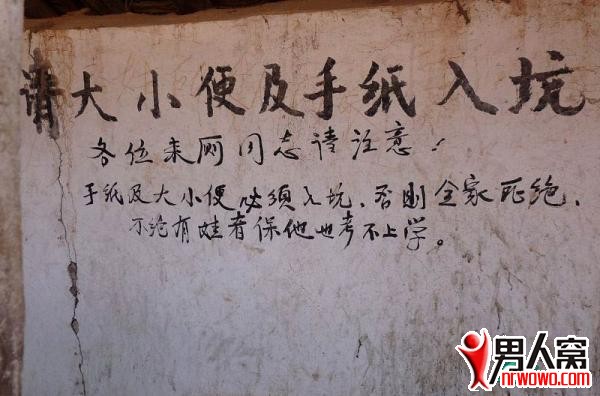 请大小便及手纸入坑
各位来厕同志请注意!
手纸及大小便必须入坑，否则全家死绝，
不绝有娃者保他也考不上学。
男人窝
nrwowo.com